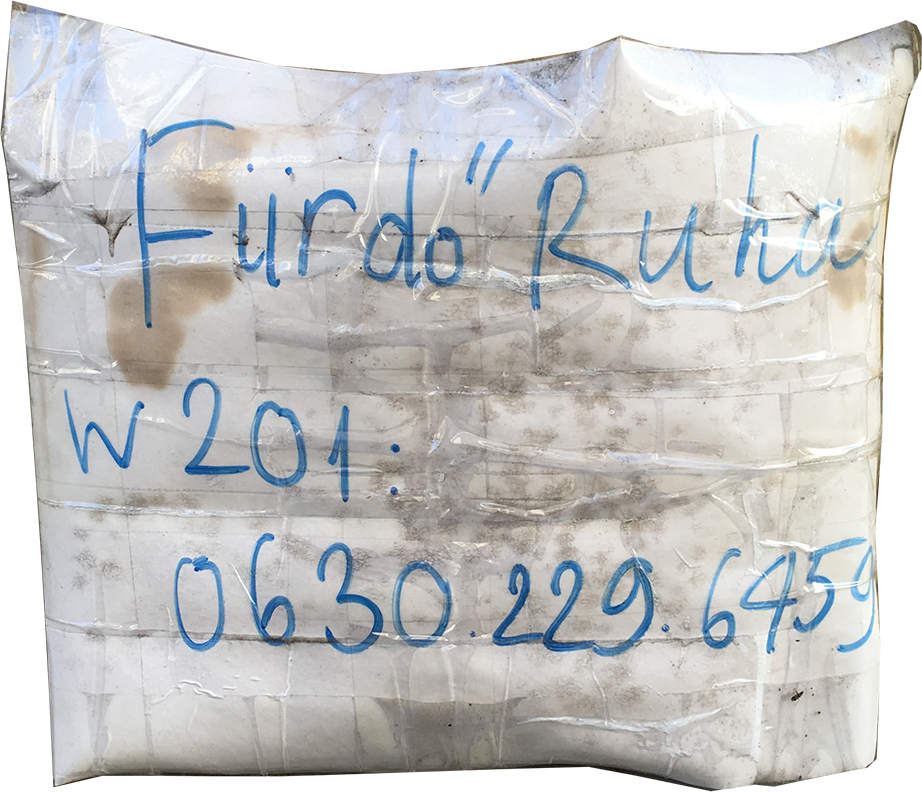 Fürdő Ruha
W 201:
0630.229.6459